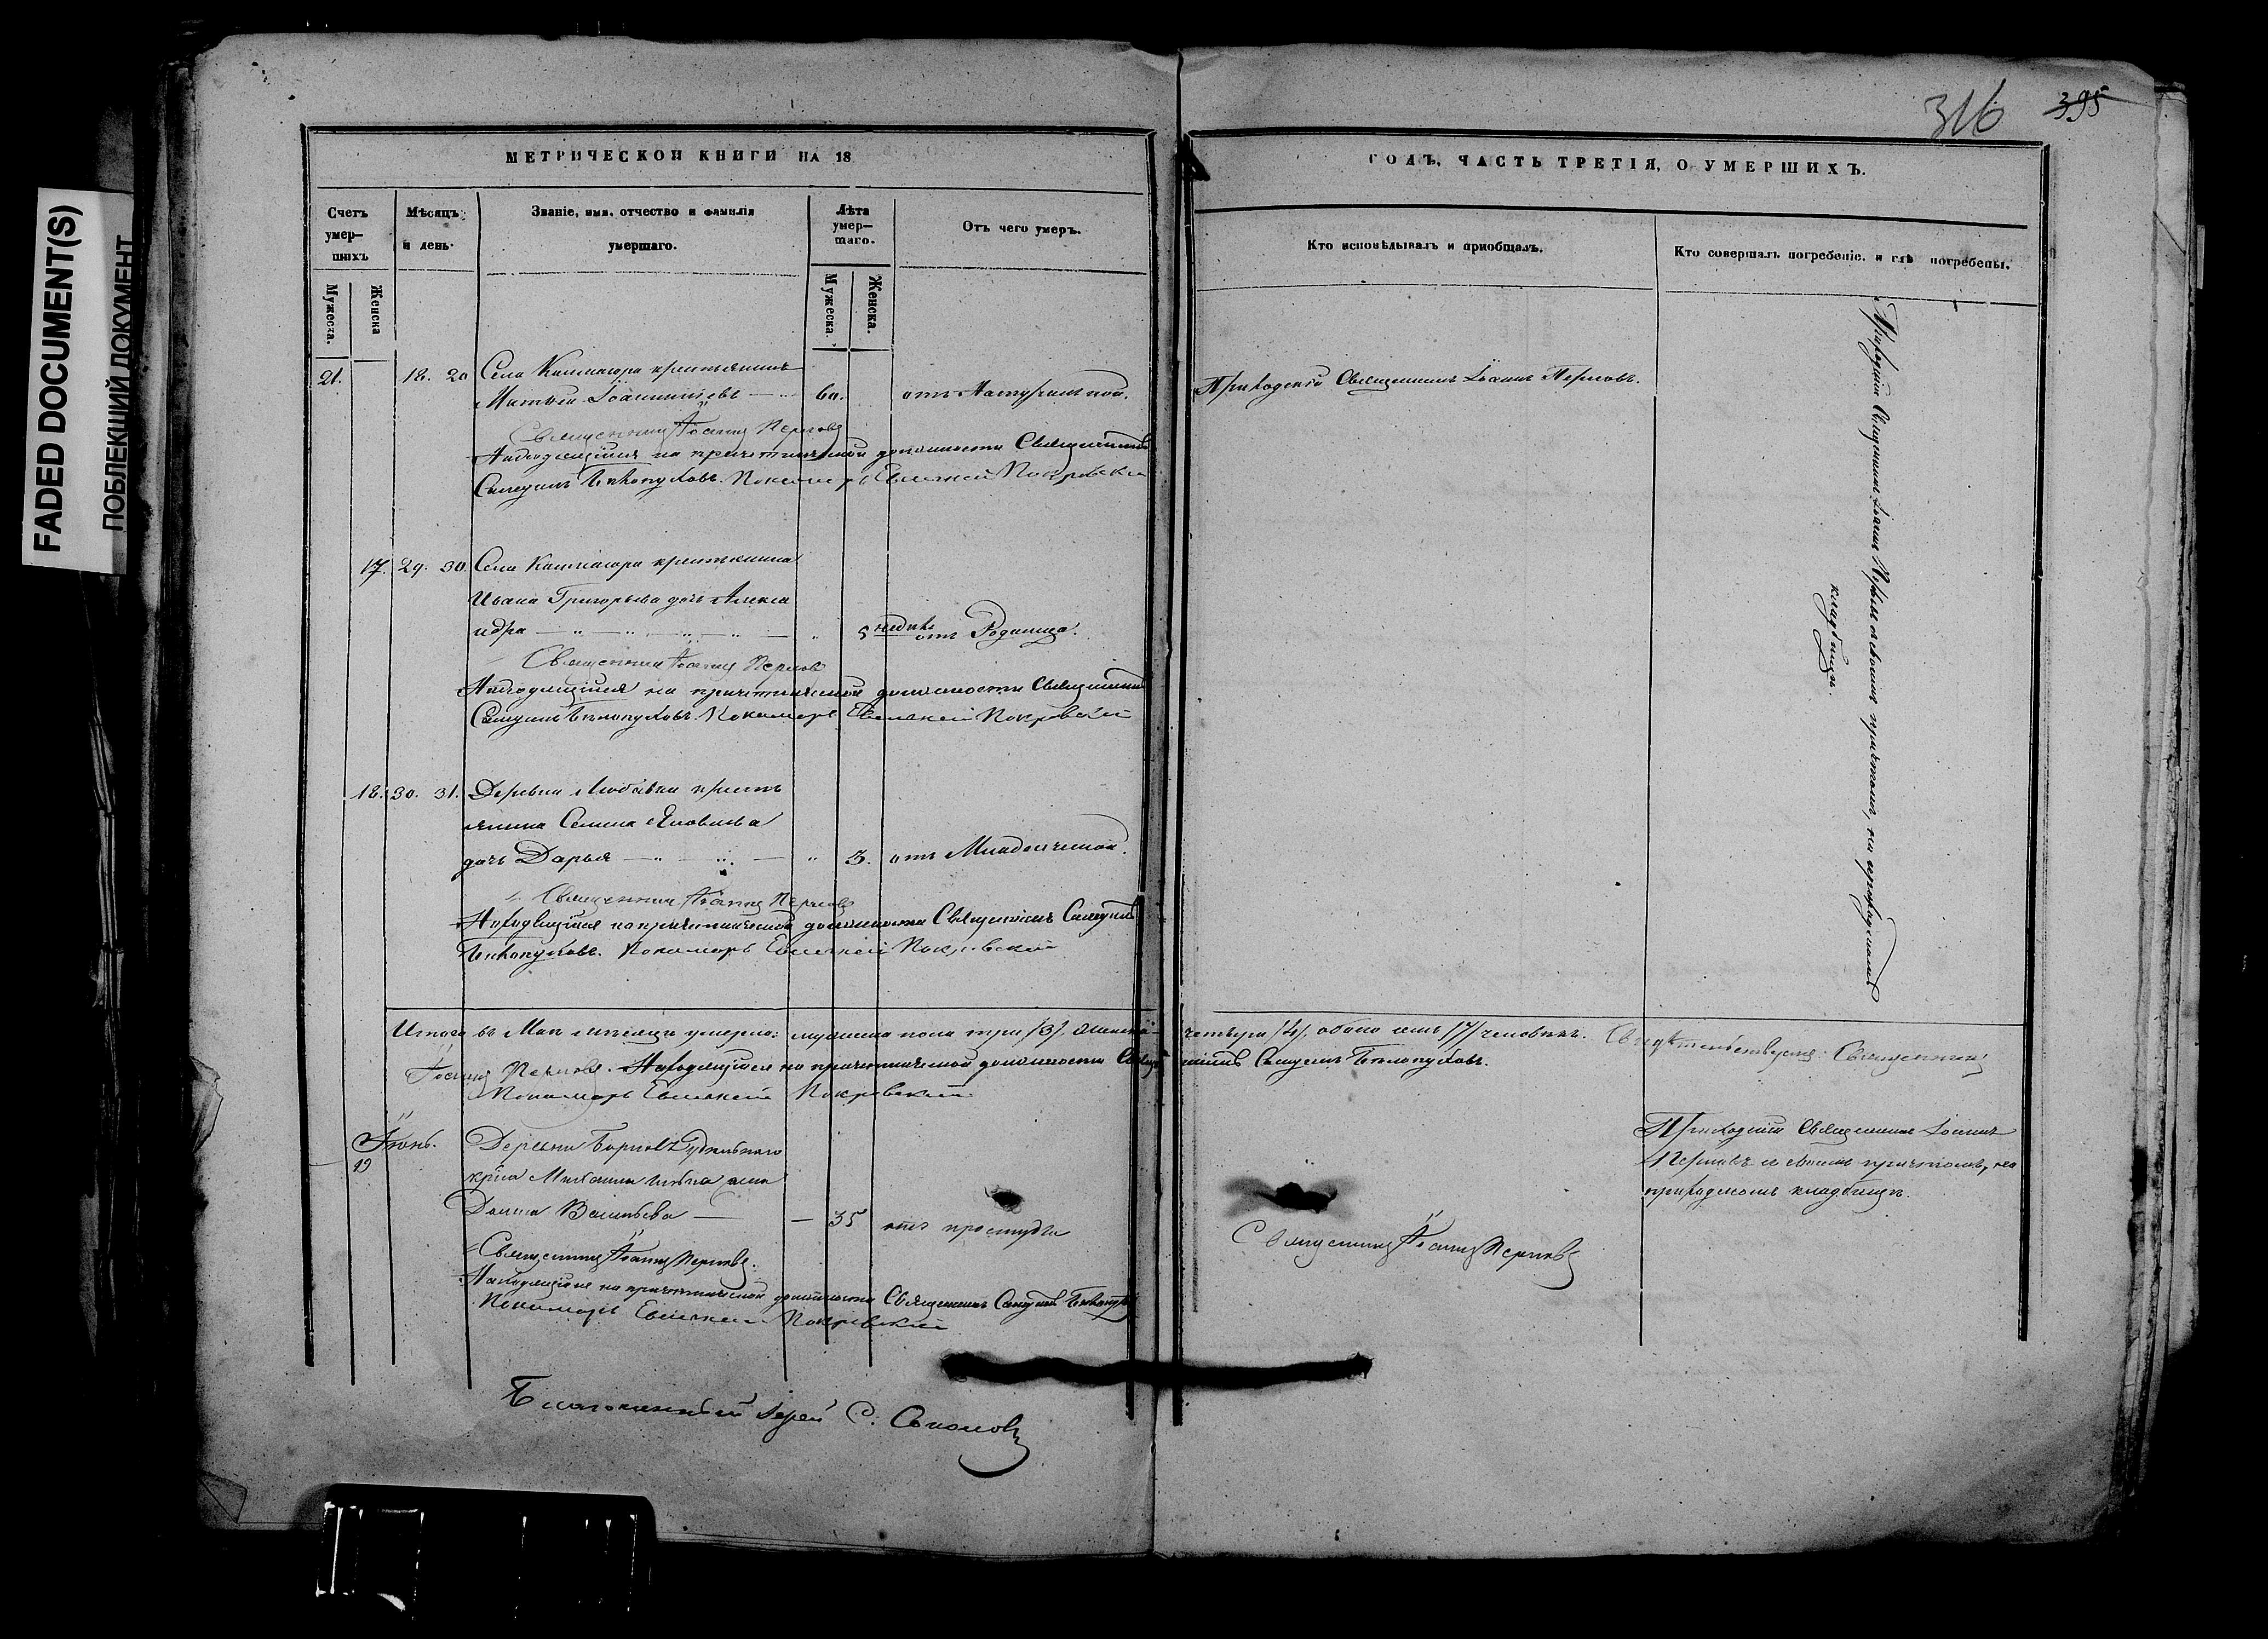 FADED DOCUMENT(S)
ПОБЛЕКШИЙ ДОКУМЕНТ
316 395
МЕТРИЧЕСКОЙ КНИГИ НА 18
ГОДЪ, ЧАСТЬ ТРЕТІЯ, О УМЕРШИХЪ.
Счетъ умер—шихъ
Мѣсяцъ и день.
Званіе, имя, отчество и фамилія умершаго.
Лѣта умер—шаго.
Отъ чего умеръ.
Кто исповѣдывалъ и пріобщалъ.
Кто совершалъ погребеніе. и гдѣ погребены.
Мужеска.
Женска
Мужеска.
Женска.
21. 18. 20 Села крестьянинъ
60. отъ Натуральной.
Приходскій Священникъ Іоаннъ Перловъ.
Священникъ Іоаннъ Перловъ
Находящійся на причетнической должности Священникъ
Самуилъ Бѣлопуховъ. Пономарь Евгеній Покровскій
17. 29. 30. Села крестьянина
Ивана Григорьева дочь Алекса
ндра 5 недѣль отъ Родимца.
Священникъ Іоаннъ Перловъ
Находящійся на причетнической должности Священникъ
Самуилъ Бѣлопуховъ. Пономарь Евгеній Покровскій
18. 30. 31. Деревни Любавки кресть
янина Семена Яковлева
дочь Дарья 3. отъ Младенческой.
Священникъ Іоаннъ Перловъ
Находящійся на причетнической должности Священникъ Самуилъ
Бѣлопуховъ. Пономарь Евгеній Покровскій
Приходскій Священникъ Іоаннъ Перловъ съ своимъ причтомъ, на приходскомъ
кладбищѣ.
Итого въ Маѣ мѣсяцѣ умерло: мужеска пола три /3/, женска четыре /4/, обоего семь /7/ человѣкъ. Свидѣтельствуемъ: Священникъ
Іоаннъ Перловъ. Находящійся на причетнической должности Священникъ Самуилъ Бѣлопуховъ.
Пономарь Евгеній Покровскій
Іюнь.
19
Деревни
Михаила жена
Васильева — — 35 отъ простуды
Священникъ Іоаннъ Перловъ
Приходскій Священникъ Іоаннъ
Перловъ съ своимъ причтомъ, на
приходскомъ кладбищѣ.
Священникъ Іоаннъ Перловъ.
Находящійся на причетнической должности Священникъ Самуилъ
Пономарь Евгеній Покровскій
Благочинный Іерей С. Соколовъ